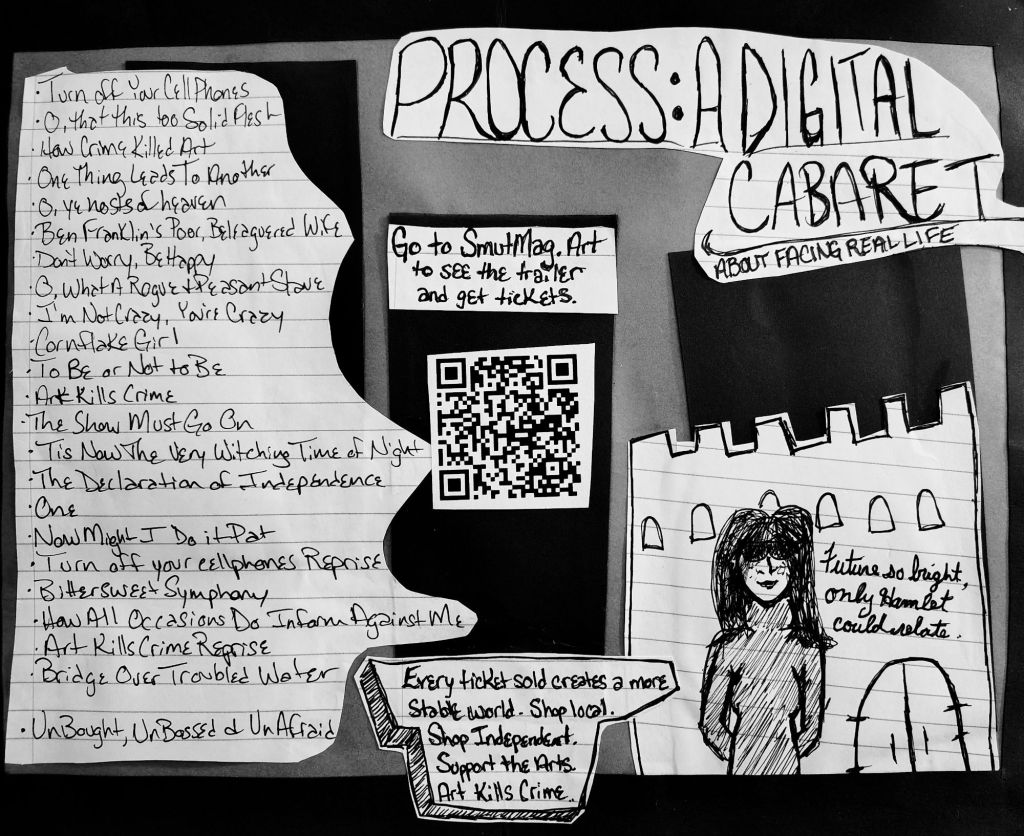 PROCESS: A DIGITAL
CABARET
ABOUT FACING REAL LIFE
· Turn off Your Cell Phones
· O, that this too Solid Flesh
· How Crime Killed Art
· One Thing Leads To Another
· O, ye hosts of heaven
· Ben Franklin's Poor, Beleaguered Wife
· Don't Worry, Be Happy
· O, What A Rogue & Peasant Slave
· I'm Not Crazy, You're Crazy
· Cornflake Girl
· To Be or Not to Be
· Art Kills Crime
· The Show Must Go On
· Tis Now The Very Witching Time of Night
· The Declaration of Independence
· One
· Now Might I Do it Pat
· Turn off your cellphones Reprise
· Bittersweet Symphony
· How All Occasions Do Inform Against Me
· Art Kills Crime Reprise
· Bridge Over Troubled Water
· UnBought, UnBossed & UnAfraid
Go to SmutMag.Art
to see the trailer
and get tickets.
Future so bright,
only Hamlet
could relate.
Every ticket sold creates a more
stable world. Shop local.
Shop Independent.
Support the Arts.
Art Kills Crime.